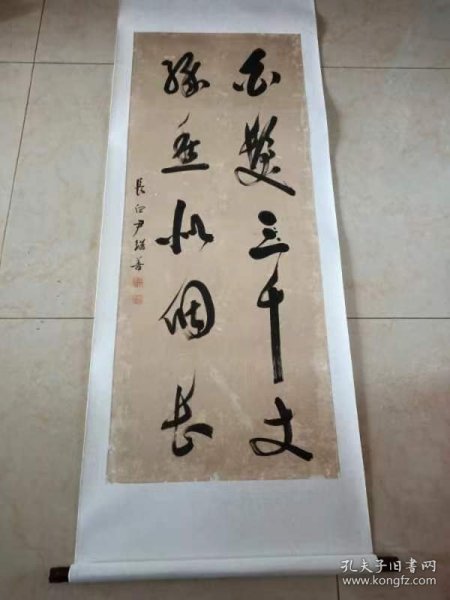 白髮三千丈
緣愁似個長
長白尹繼善
孔夫子旧书网
www.kongfz.com